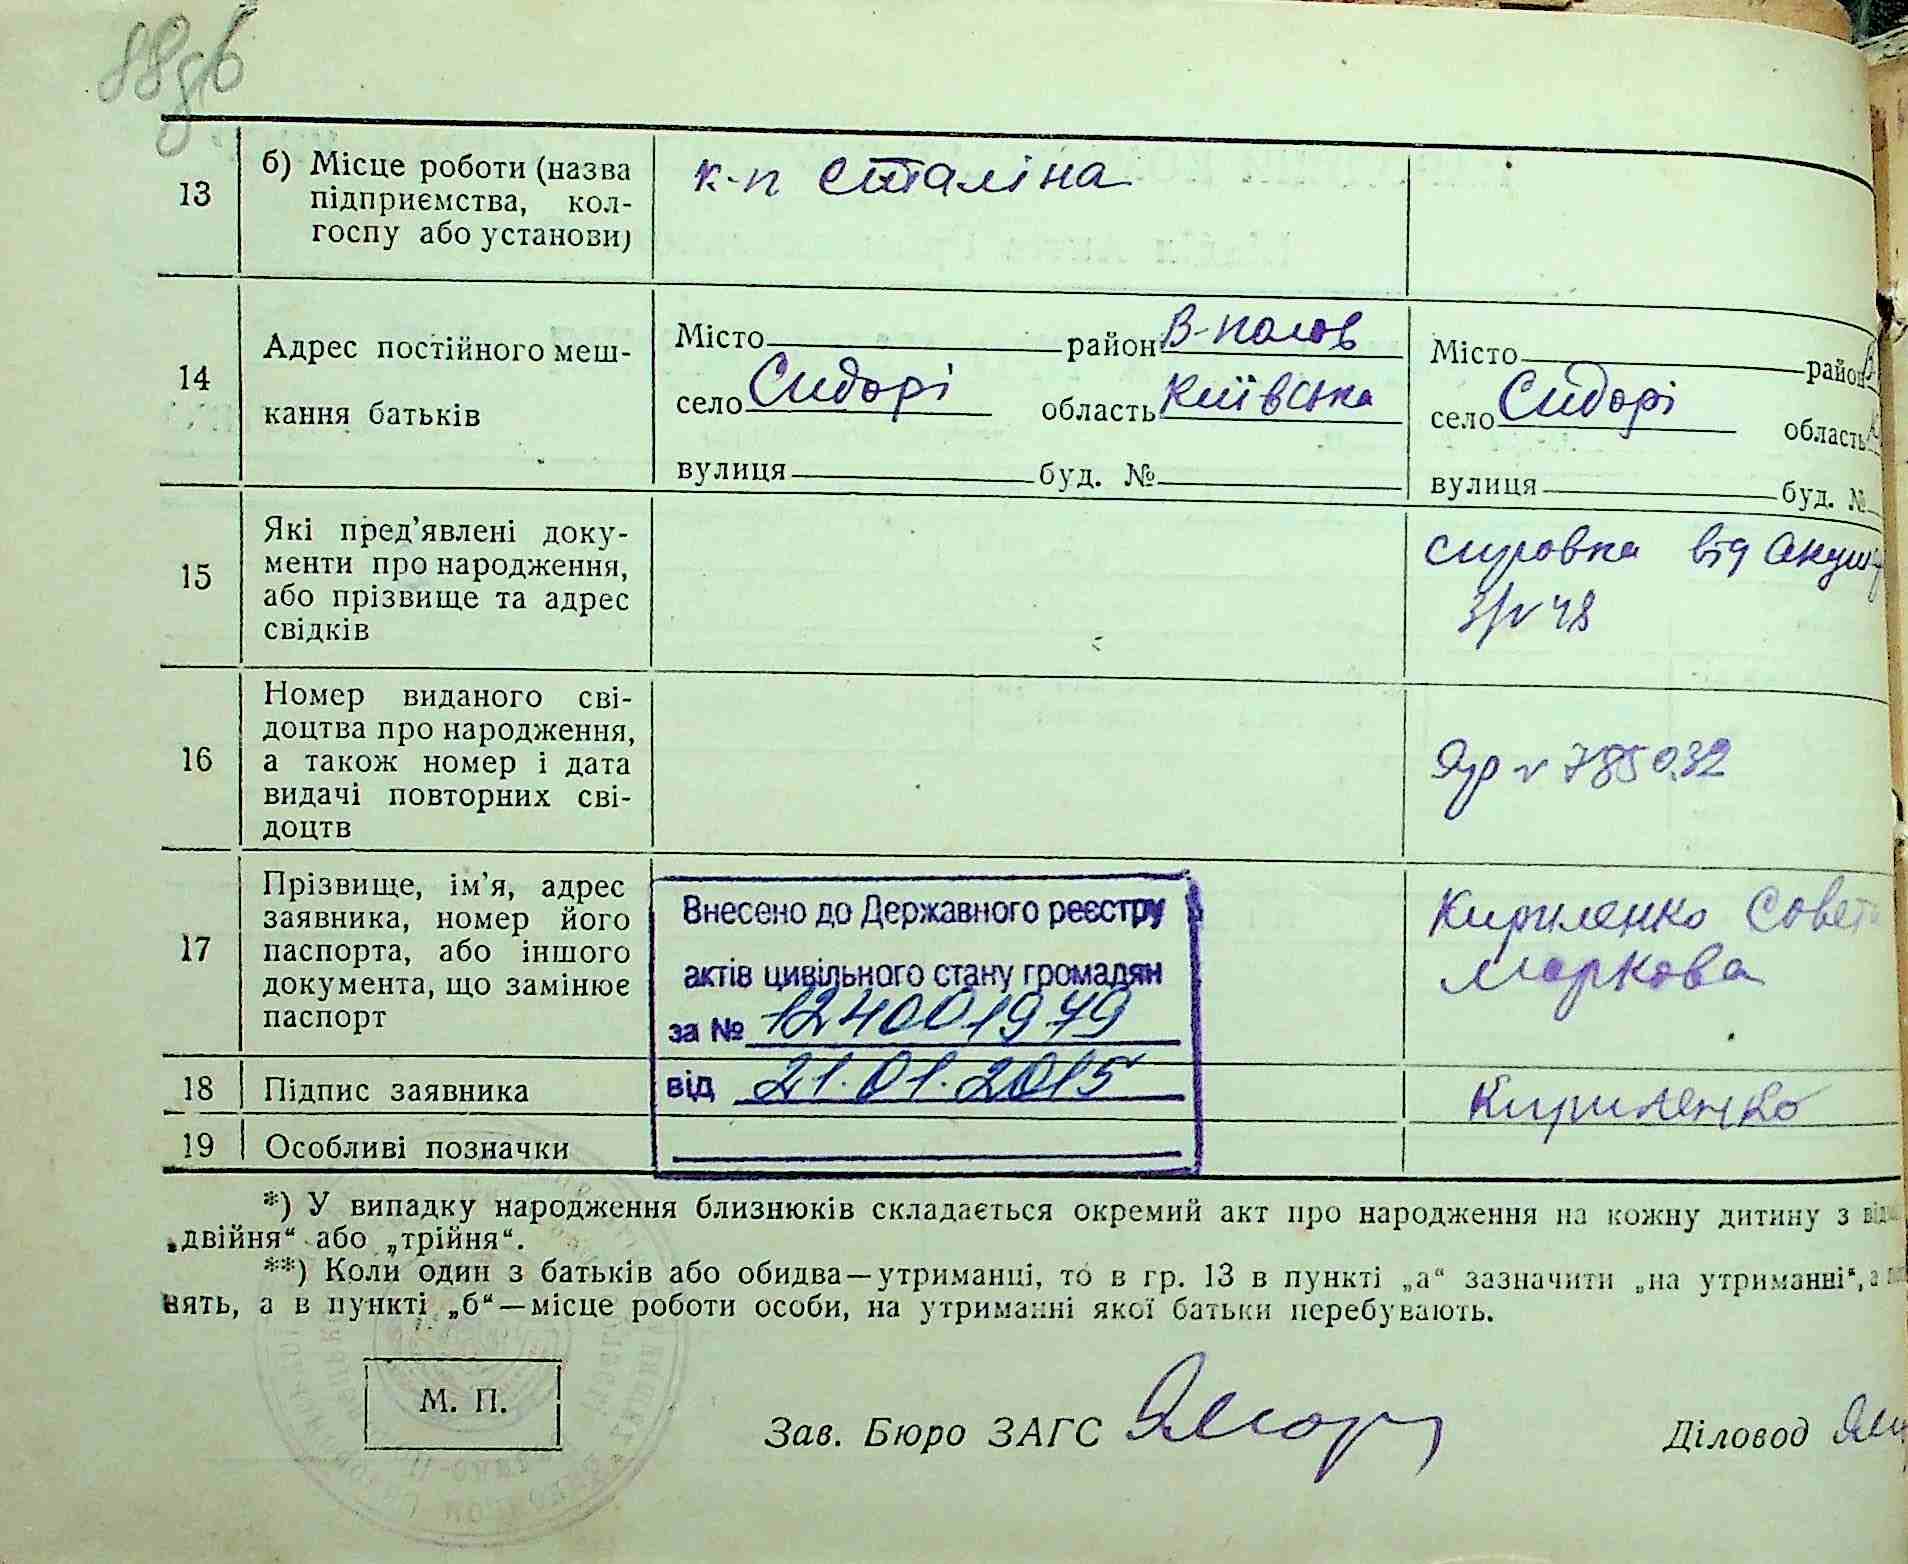 13
б) Місце роботи (назва
підприємства, кол-
госпу або установи)
к-п Сталіна
14
Адрес постійного меш-
кання батьків
Місто район В-полов
село Сидорі область Київська
вулиця буд. №
Місто район В
село Сидорі область К
вулиця буд. №
15
Які пред’явлені доку-
менти про народження,
або прізвище та адрес
свідків
від Акуш
16
Номер виданого сві-
доцтва про народження,
а також номер і дата
видачі повторних сві-
доцтв
785032
17
Прізвище, ім’я, адрес
заявника, номер його
паспорта, або іншого
документа, що замінює
паспорт
Внесено до Державного реєстру
актів цивільного стану громадян
за № 1240019 79
від 21.01.2015
Кириленко Совет
Маркова
18
Підпис заявника
Кириленко
19
Особливі позначки
*) У випадку народження близнюків складається окремий акт про народження на кожну дитину з від
„двійня“ або „трійня“.
**) Коли один з батьків або обидва—утриманці, то в гр. 13 в пункті „а“ зазначити „на утриманні“, а
нять, а в пункті „б“—місце роботи особи, на утриманні якої батьки перебувають.
М. П.
Зав. Бюро ЗАГС
Діловод